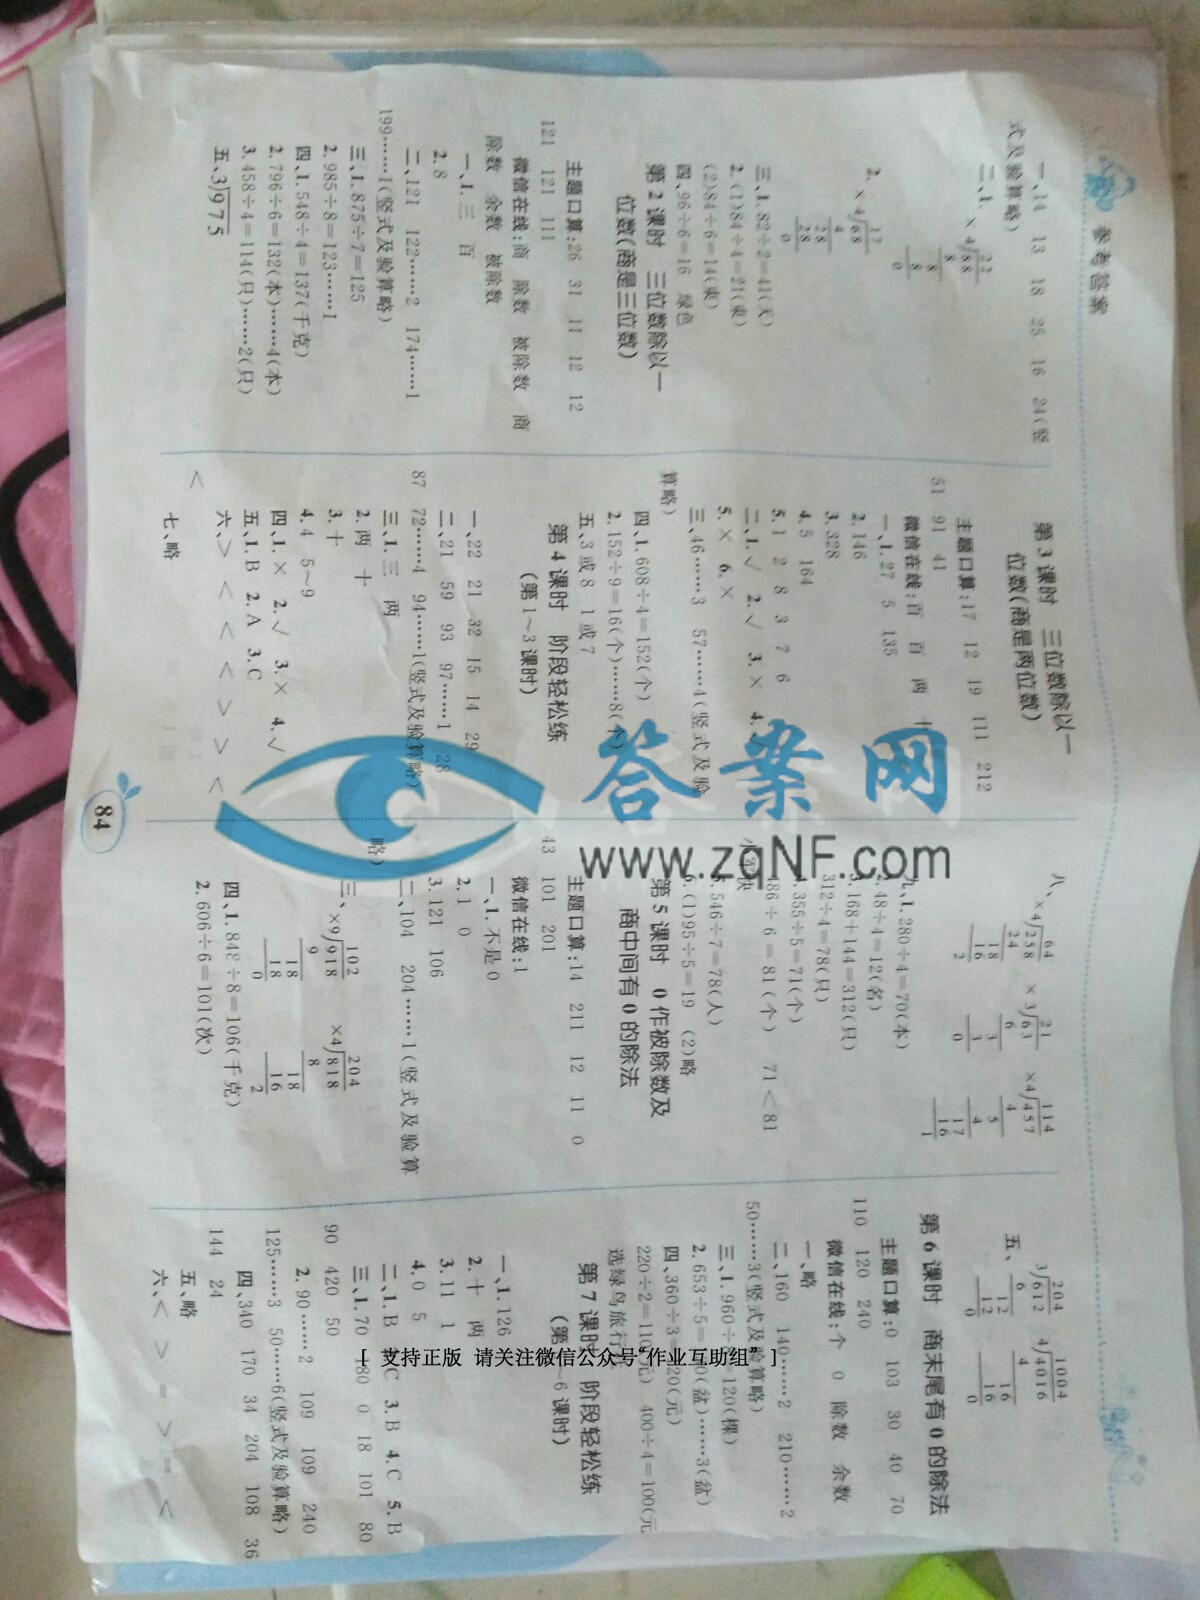 参考答案
一、14 13 18 25 16 24(竖
式及验算略)
二、1.
22
× 4)88
8
8
8
0
2.
17
× 4)68
4
28
28
0
三、1. 82÷2=41(天)
2. (1)84÷4=21(束)
(2)84÷6=14(束)
四、96÷6=16 绿色
第2课时 三位数除以一
位数(商是三位数)
主题口算:26 31 11 12 12
121 121 111
微信在线:商 除数 被除数 商
除数 余数 被除数
一、1. 三 百
2. 8
二、121 122……2 174……1
199……1(竖式及验算略)
三、1. 875÷7=125
2. 985÷8=123……1
四、1. 548÷4=137(千克)
2. 796÷6=132(本)……4(本)
3. 458÷4=114(只)……2(只)
五、3)975
第3课时 三位数除以一
位数(商是两位数)
主题口算:17 12 19 111 212
51 91 41
微信在线:百 百 两 十
一、1. 27 5 135
2. 146
3. 328
4. 5 164
5. 1 2 8 3 7 6
二、1. √ 2. √ 3. × 4. √
5. × 6. ×
三、46……3 57……4(竖式及验
算略)
四、1. 608÷4=152(个)
2. 152÷9=16(个)……8(个)
五、3或8 1或7
第4课时 阶段轻松练
(第1~3课时)
一、22 21 32 15 14 29
二、21 59 93 97……1 28
87 72……4 94……1(竖式及验算略)
三、1. 三 两
2. 两 十
3. 十
4. 4 5~9
四、1. × 2. √ 3. × 4. √
五、1. B 2. A 3. C
六、> < < > > <
<
七、略
八、
64
×4)258
24
18
16
2
21
×3)63
6
3
3
0
114
×4)457
4
5
4
17
16
1
九、1. 280÷4=70(本)
2. 48÷4=12(名)
3. 168+144=312(只)
312÷4=78(只)
4. 355÷5=71(个)
486÷6=81(个) 71<81
5. 546÷7=78(人)
6. (1)95÷5=19 (2)略
第5课时 0作被除数及
商中间有0的除法
主题口算:14 211 12 11 0
43 101 201
微信在线:1
一、1. 不是0
2. 1 0
3. 121 106
二、104 204……1(竖式及验算
略)
三、
102
×9)918
9
18
18
0
204
×4)818
8
18
16
2
四、1. 848÷8=106(千克)
2. 606÷6=101(次)
五、
204
3)612
6
12
12
0
1004
4)4016
4
16
16
0
第6课时 商末尾有0的除法
主题口算:0 103 30 40 70
110 120 240
微信在线:个 0 除数 余数
一、略
二、160 140……2 210……2
50……3(竖式及验算略)
三、1. 960÷ =120(棵)
2. 653÷5= 0(盆)……3(盆)
四、360÷3= 20(元)
220÷2=110(元) 400÷4=100(元
选绿鸟旅行
第7课时 阶段轻松练
(第 ~6课时)
一、1. 126
2. 十 两
3. 11 1
4. 0 5
二、1. B C 3. B 4. C 5. B
三、1. 70 80 0 18 101 80
90 420 50
2. 90……2 109 109 240
125……3 50……6(竖式及验算略)
四、340 170 34 204 108 36
144 24
五、略
六、< > = > = <
84
答案网
www.zqNF.com
[ 支持正版 请关注微信公众号“作业互助组” ]